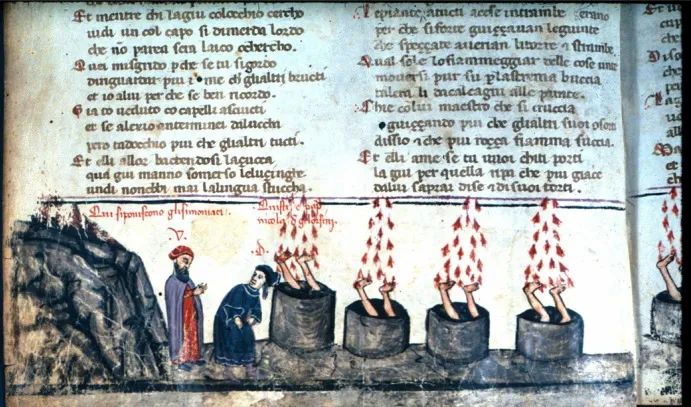 Et mentre chi lagiu colocchio cercho
uidi un col capo si dimerda lordo
che nõ parea sera laico ocherco.
Quei misgrido pche se tu sigordo
diriguardar piu me di glialtri bructi
et io alui per che se ben ricordo.
Gia to ueduto co capelli asciucti
et se alexio interminei dalucchi
pero tadocchio piu che glialtri tucti.
Et elli allor bactendosi laçucca
qua giu manno somerso leluçinghe
undi nonebbi mai lalingua stuccha.
le piante a tucti acese intrambe erano
per che siforte guiççauan legiunte
che speççate auerian litorte & strambe
Qual sole lo fiammeggiar delle cose unte
mouersi pur su plastrema buccia
tal era li dacalcagni alle punte.
Chie colui maestro che si cruccia
guiççando piu che glialtri suoi osorti
dissio & che piu roçça fiamma succia.
Et elli ame se tu uuoi chiti porti
la giu per quella ripa che piu giace
dalui saprai di se & di suoi torti.
Qui si poniscono glisimoniaci.
Questi e papa
nicola degli orsini.
V.
D.